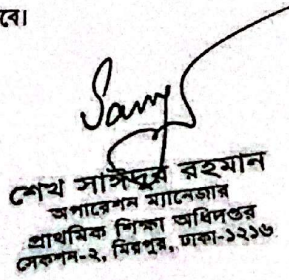 বে।
শেখ সাঈদুর রহমান
অপারেশন ম্যানেজার
প্রাথমিক শিক্ষা অধিদপ্তর
সেকশন-২, মিরপুর, ঢাকা-১২১৬